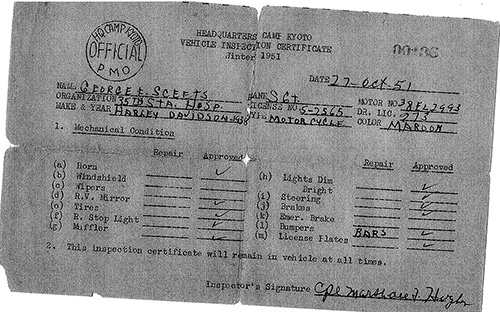 HQ CAMP KYOTO
OFFICIAL
PMO
HEADQUARTERS CAMP KYOTO
VEHICLE INSPECTION CERTIFICATE
Winter 1951
DATE 27-Oct-51
NAME GEORGE E. SCEETS RANK SGT MOTOR NO 38EL2993
ORGANIZATION 35TH STA. HOSP. LICENSE NO S-2565 DR. LIC. 273
MAKE & YEAR HARLEY DAVIDSON-1938 MOTORCYCLE COLOR MAROON
1. Mechanical Condition
Repair Approved Repair Approved
(a) Horn ✓ (h) Lights Dim
(b) Windshield Bright ✓
(c) Wipers (i) Steering ✓
(d) R.V. Mirror (j) Brakes ✓
(e) Tires ✓ (k) Emer. Brake
(f) R. Stop Light ✓ (l) Bumpers BARS ✓
(g) Muffler ✓ (m) License Plates ✓
2. This inspection certificate will remain in vehicle at all times.
Inspector's Signature Cpl Marshall J.